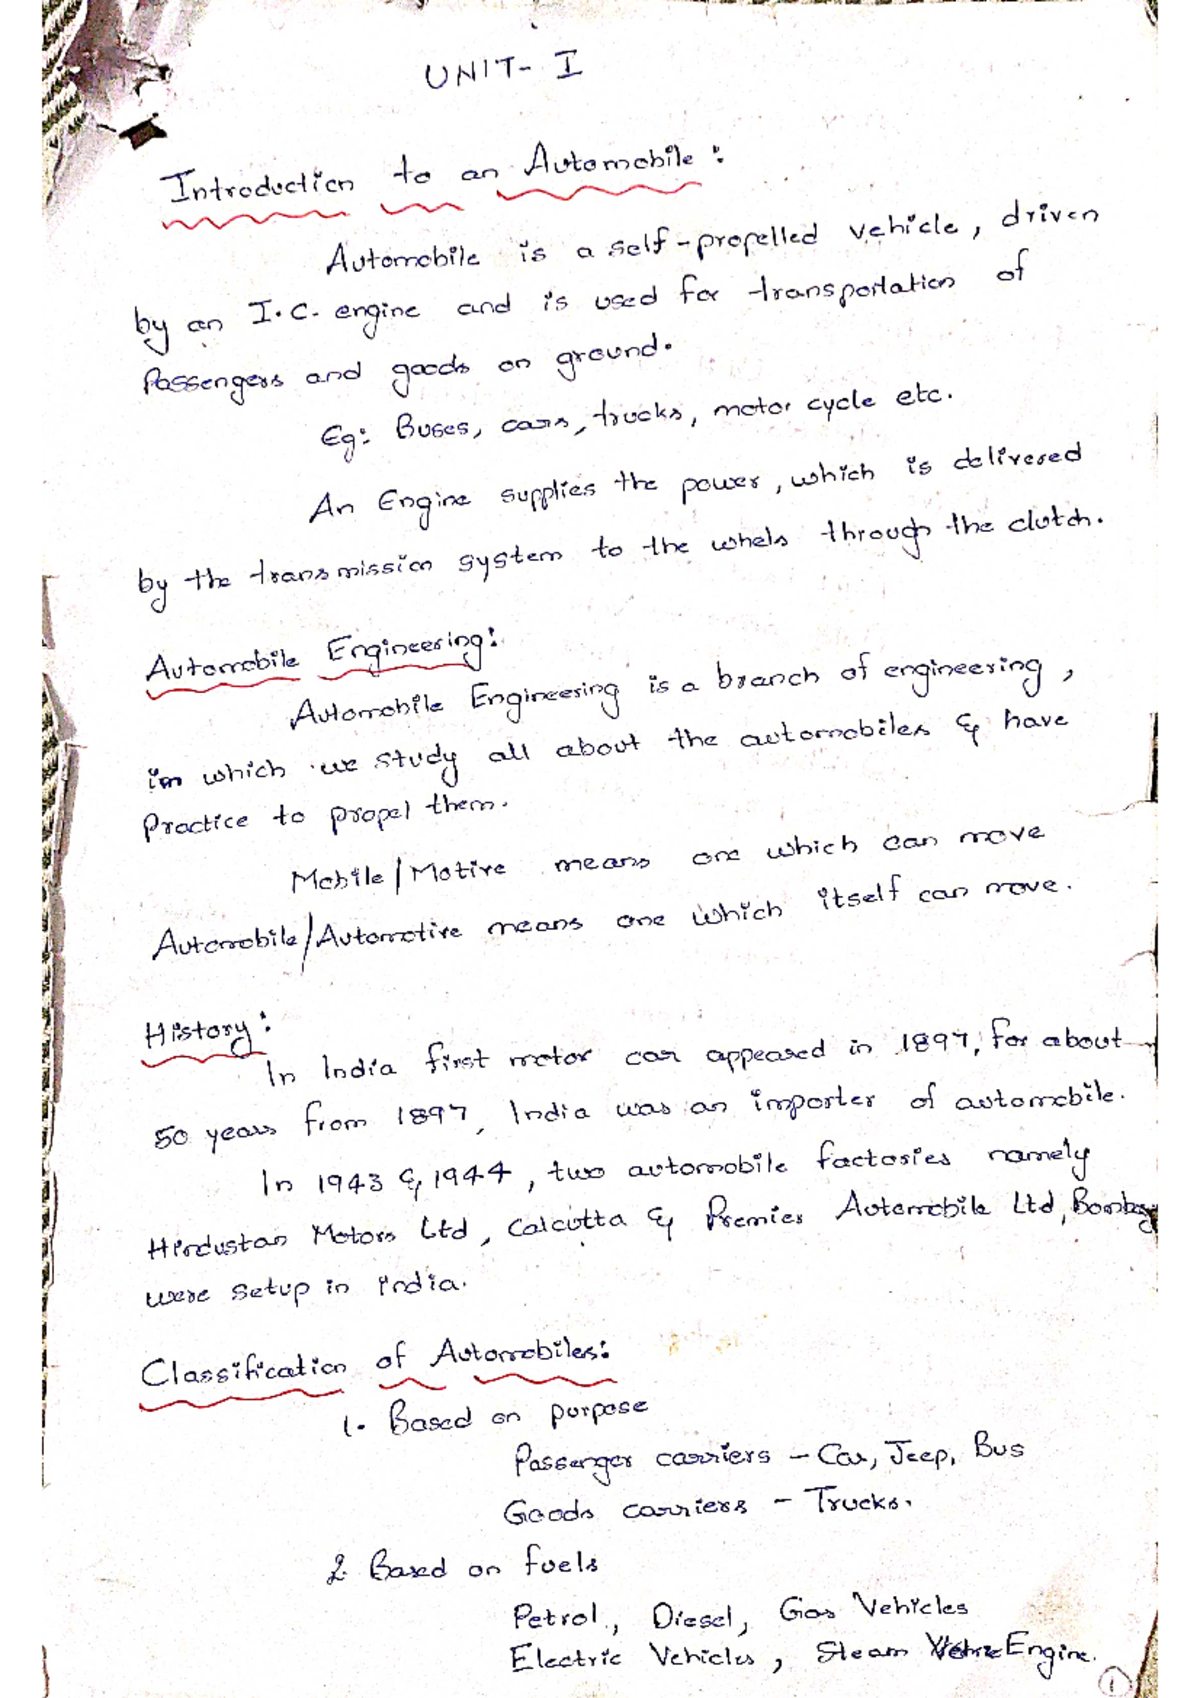 UNIT- I
Introduction to an Automobile:
Automobile is a self-propelled vehicle, driven
by an I.C. engine and is used for transportation of
Passengers and goods on ground.
Eg: Buses, cars, trucks, motor cycle etc.
An Engine supplies the power, which is delivered
by the transmission system to the whels through the clutch.
Automobile Engineering:
Automobile Engineering is a branch of engineering,
in which we study all about the automobiles & have
Practice to propel them.
Mobile/Motive means one which can move
Automobile/Automotive means one which itself can move.
History:
In India first motor car appeared in 1897, for about
50 years from 1897, India was an importer of automobile.
In 1943 & 1944, two automobile factories namely
Hindustan Motors Ltd, Calcutta & Premier Automobile Ltd, Bombay
were setup in india.
Classification of Automobiles:
1. Based on purpose
Passenger carriers - Car, Jeep, Bus
Goods carriers - Trucks.
2. Based on fuels
Petrol, Diesel, Gas Vehicles
Electric Vehicles, Steam Engine.
1